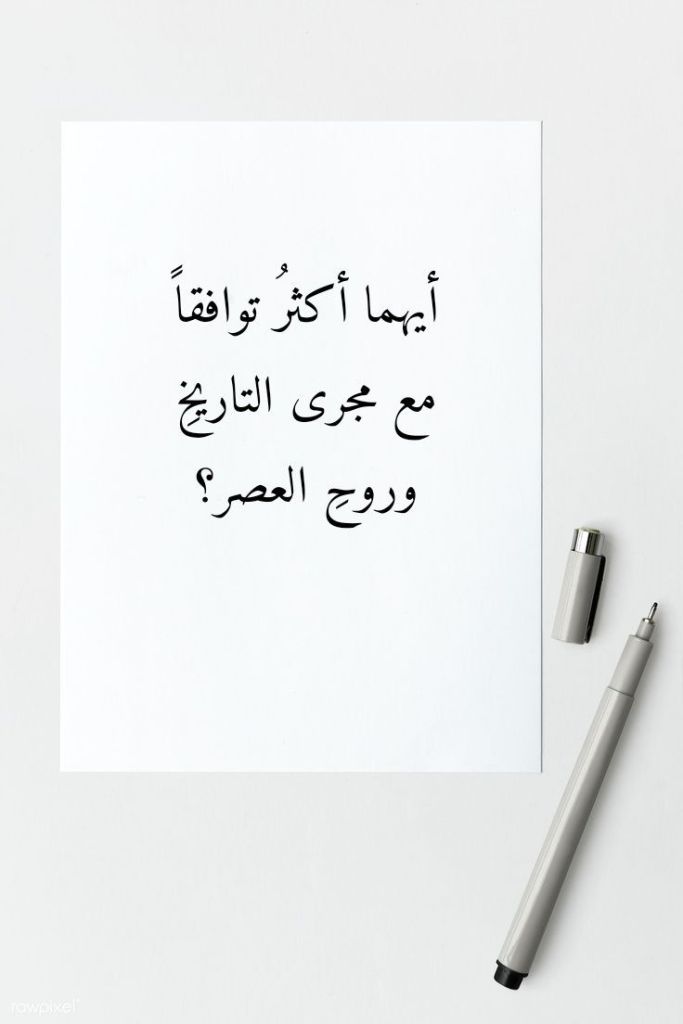 أيهما أكثرُ توافقاً
مع مجرى التاريخِ
وروحِ العصر؟
rawpixel